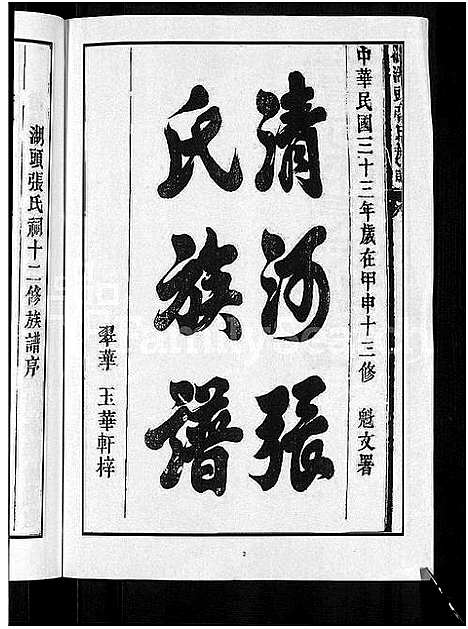 中華民國三十三年歲在甲申十三修　魁文署
清河張
氏族譜
翠華　玉華軒梓
湖頭張氏祠十二修族譜序
2